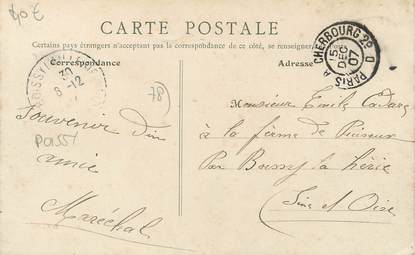 40€
CARTE POSTALE
Certains pays étrangers n'acceptant pas la correspondance de ce côté, se renseigner
Correspondance
Adresse
CHERBOURG A PARIS 2° D
15
DEC
07
30
8-12
78
Souvenir d'un
amie
Maréchal
POISSY
Monsieur Emile
à la ferme de
Par Boissy la
Seine et Oise